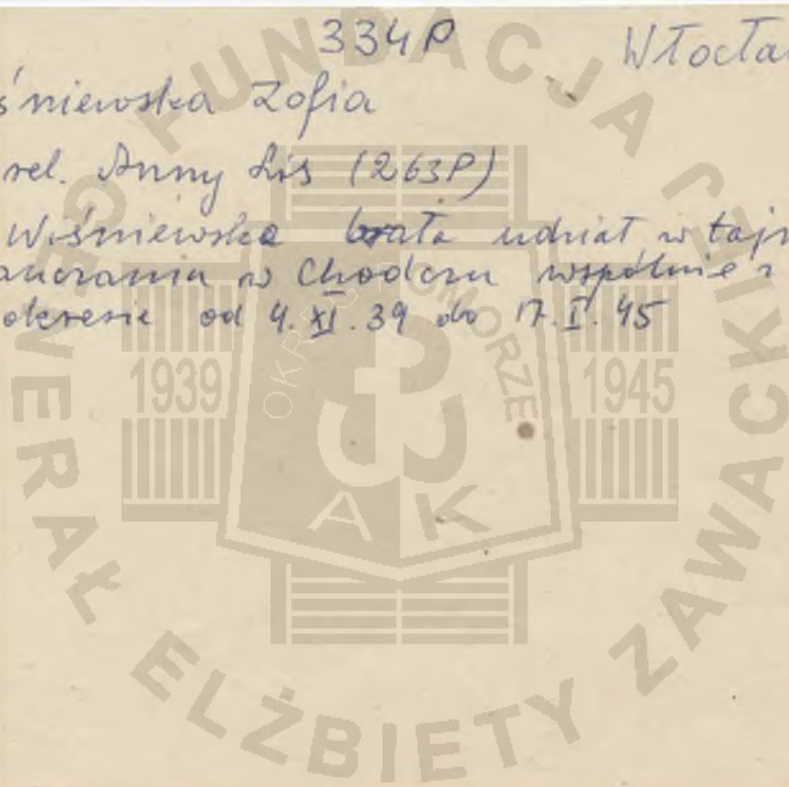 334P
Włocła
śniewska Zofia
rel. Anny Lis (263P)
Wiśniewska brała udział w taj
auczaniu w Chodczu wspólnie z
okresie od 4.XI.39 do 17.I.45
FUNDACJA GENERAŁ ELŻBIETY ZAWACKIEJ
OKRĘG POMORZE
1939
1945
AK